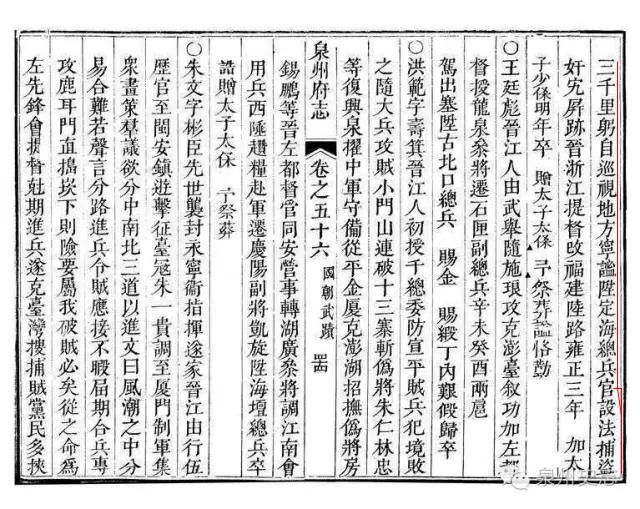 三千里躬自巡視地方寧謐陞定海總兵官設法捕盜
奸宄屏跡晉浙江提督改福建陸路雍正三年 加太
子少保明年卒 贈太子太保 予祭葬謚恪勤
〇王廷彪晉江人由武舉隨施琅攻克澎臺敘功加左都
督授龍泉叅將遷石匣副總兵辛未癸酉兩扈
駕出塞陞古北口總兵 賜金 賜緞丁內艱假歸卒
〇洪範字壽箕晉江人初授千總委防宣平賊兵犯境敗
之隨大兵攻賊小門山連破十三寨斬偽將朱仁林忠
等復興泉擢中軍守備從平金厦克澎湖招撫偽將房
錫鵬等晉左都督官同安營事轉湖廣叅將調江南會
用兵西陲趲糧赴軍遷慶陽副將凱旋陞海壇總兵卒
誥贈太子太保 予祭葬
〇朱文字彬臣先世襲封永寧衛指揮遂家晉江由行伍
歷官至閩安鎮遊擊征臺冦朱一貴調至厦門制軍集
衆畫策羣議欲分中南北三道以進文曰風潮之中分
易合難若聲言分路進兵令賊應接不暇屆期合兵專
攻鹿耳門直搗崁下則險要屬我破賊必矣從之命爲
左先鋒會提督尅期進兵遂克臺灣搜捕賊黨民多挾
泉州府志
卷之五十六 國朝武蹟 
泉州史志